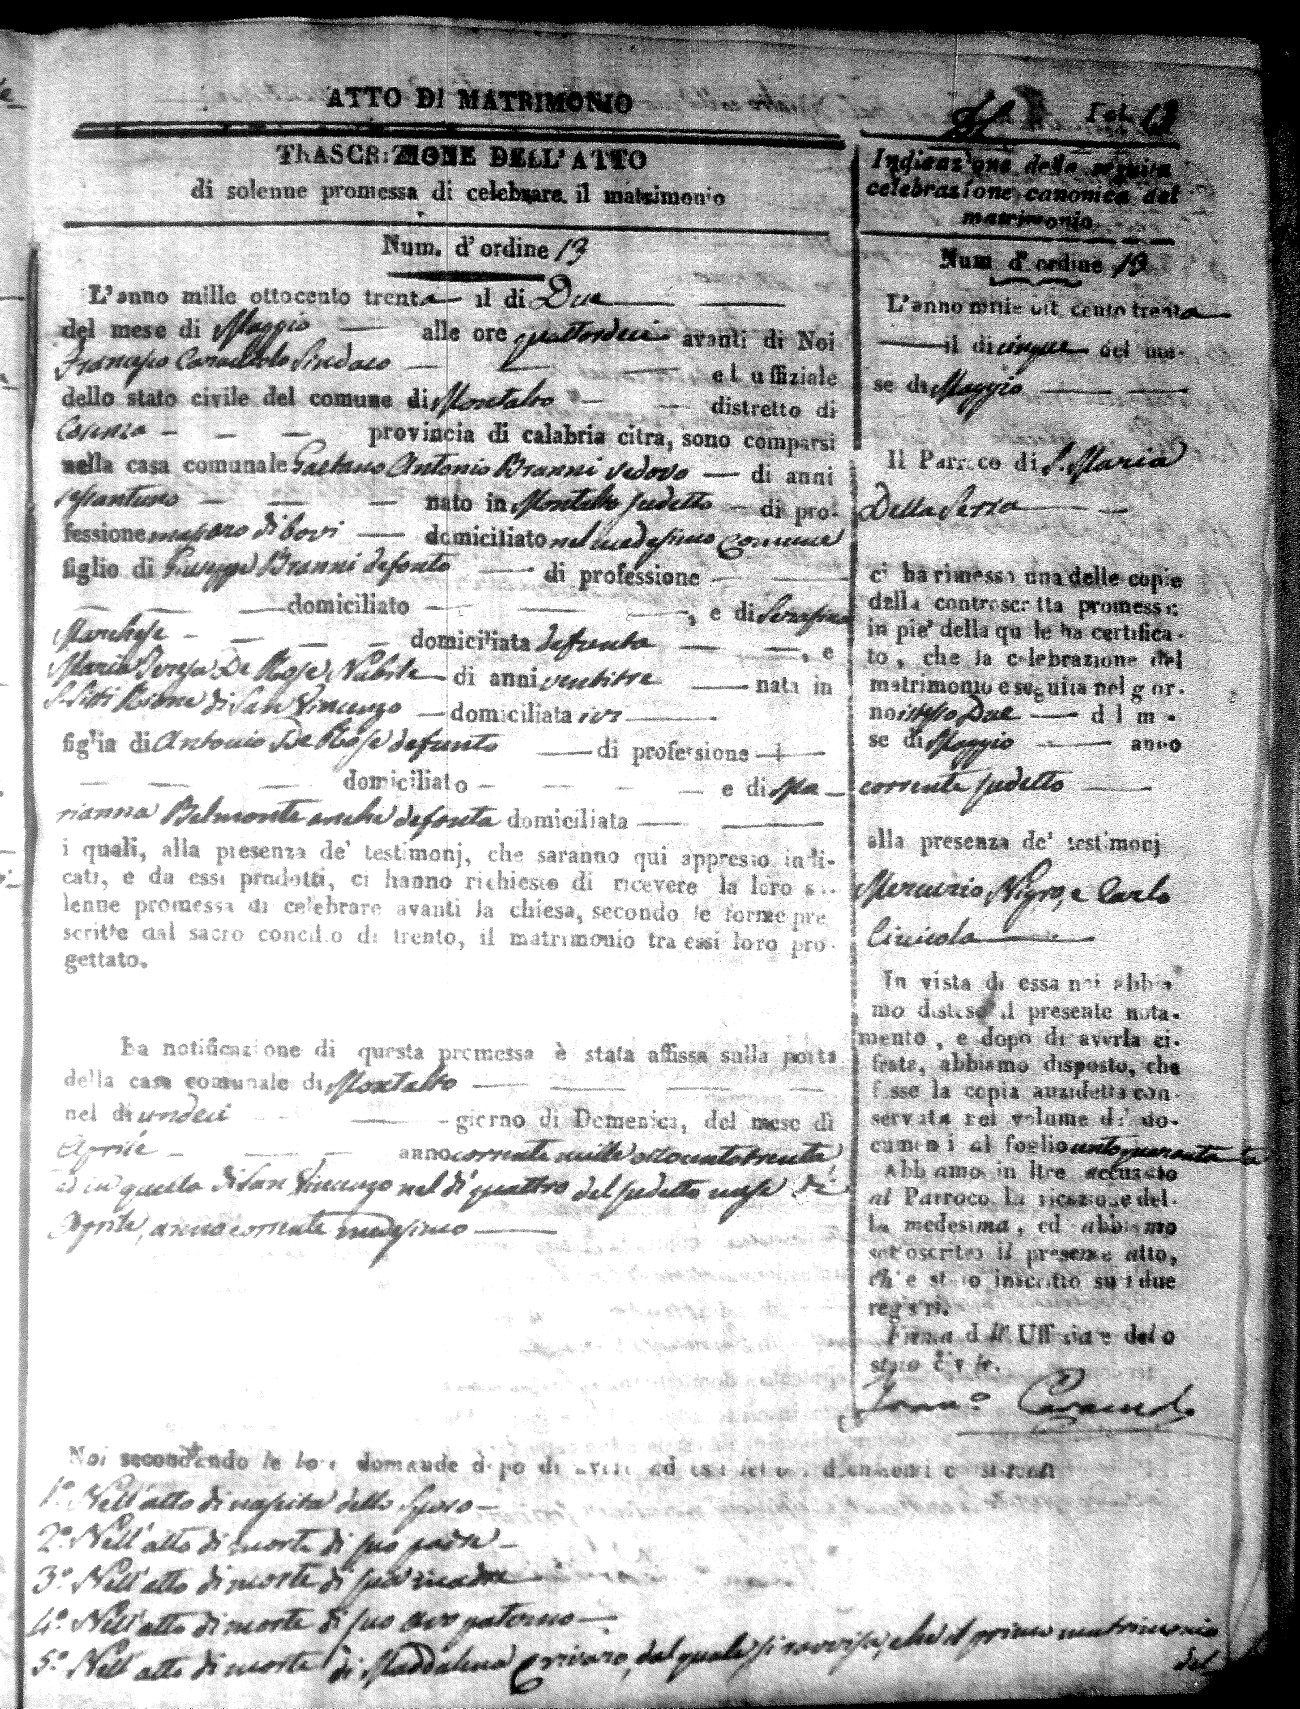 ATTO DI MATRIMONIO
TRASCRIZIONE DELL'ATTO
di solenne promessa di celebrare il matrimonio
Num. d'ordine 13
L'anno mille ottocento trenta il di Due
del mese di Maggio alle ore quattordici avanti di Noi
Francesco Caracciolo Sindaco ed uffiziale
dello stato civile del comune di Montalto distretto di
Cosenza provincia di calabria citra, sono comparsi
nella casa comunale Gaetano Antonio Branni vedovo di anni
nato in Montalto sudetto di pro-
fessione massaro di bovi domiciliato nel medesimo Comune
figlio di Giuseppe Branni defonto di professione
domiciliato , e di Serafina
Marchese domiciliata defonta , e
Maria Teresa De Rose Nubile di anni ventitre nata in
S. Sisti Rione di San Vincenzo domiciliata ivi
figlia di Antonio De Rose defunto di professione
domiciliato e di Ma-
rianna Belmonte anche defonta domiciliata
i quali, alla presenza de' testimonj, che saranno qui appresso indi-
cati, e da essi prodotti, ci hanno richiesto di ricevere la loro so-
lenne promessa di celebrare avanti la chiesa, secondo le forme pre
scritte dal sacro concilio di trento, il matrimonio tra essi loro pro-
gettato.
La notificazione di questa promessa è stata affissa sulla porta
della casa comunale di Montalto
nel di undeci giorno di Domenica, del mese di
Aprile anno corrente mille ottocentotrenta
ed in quella di San Vincenzo nel dì quattro del sudetto mese di
Aprile, anno corrente medesimo
Fol. 13
Indicazione della seguita
celebrazione canonica del
matrimonio
Num d'ordine 13
L'anno mille ott cento trenta
il di cinque del me-
se di Maggio
Il Parroco di S. Maria
Della Serra
ci ha rimessa una delle copie
della controscritta promessa
in pie' della quale ha certifica-
to, che la celebrazione del
matrimonio e seguita nel gior-
no istesso Due del me-
se di Maggio anno
corrente sudetto
alla presenza de' testimonj
Mercurio Nigro, e Carlo
In vista di essa noi abbia
mo disteso il presente nota-
mento, e dopo di averla ci-
frata, abbiamo disposto, che
fosse la copia anzidetta con-
servata nel volume de' do-
cumenti al foglio
Abbiamo in ltre accusato
al Parroco la ricezione del-
la medesima, ed abbiamo
sottoscritto il presente atto,
ch'e stato inscritto su i due
registri.
Firma dell' Uffiziale dello
stato Civile.
Franco Caracciolo
Noi secondando le loro domande dopo di aver ad essi letto i documenti consistenti
1º Nell'atto di nascita dello Sposo
2º Nell'atto di morte di suo padre
3º Nell'atto di morte di sua madre
4º Nell'atto di morte di suo avo paterno
5º Nell'atto di morte di Maddalena Crivaro, dal quale si ravvisa, che il primo matrimonio
del